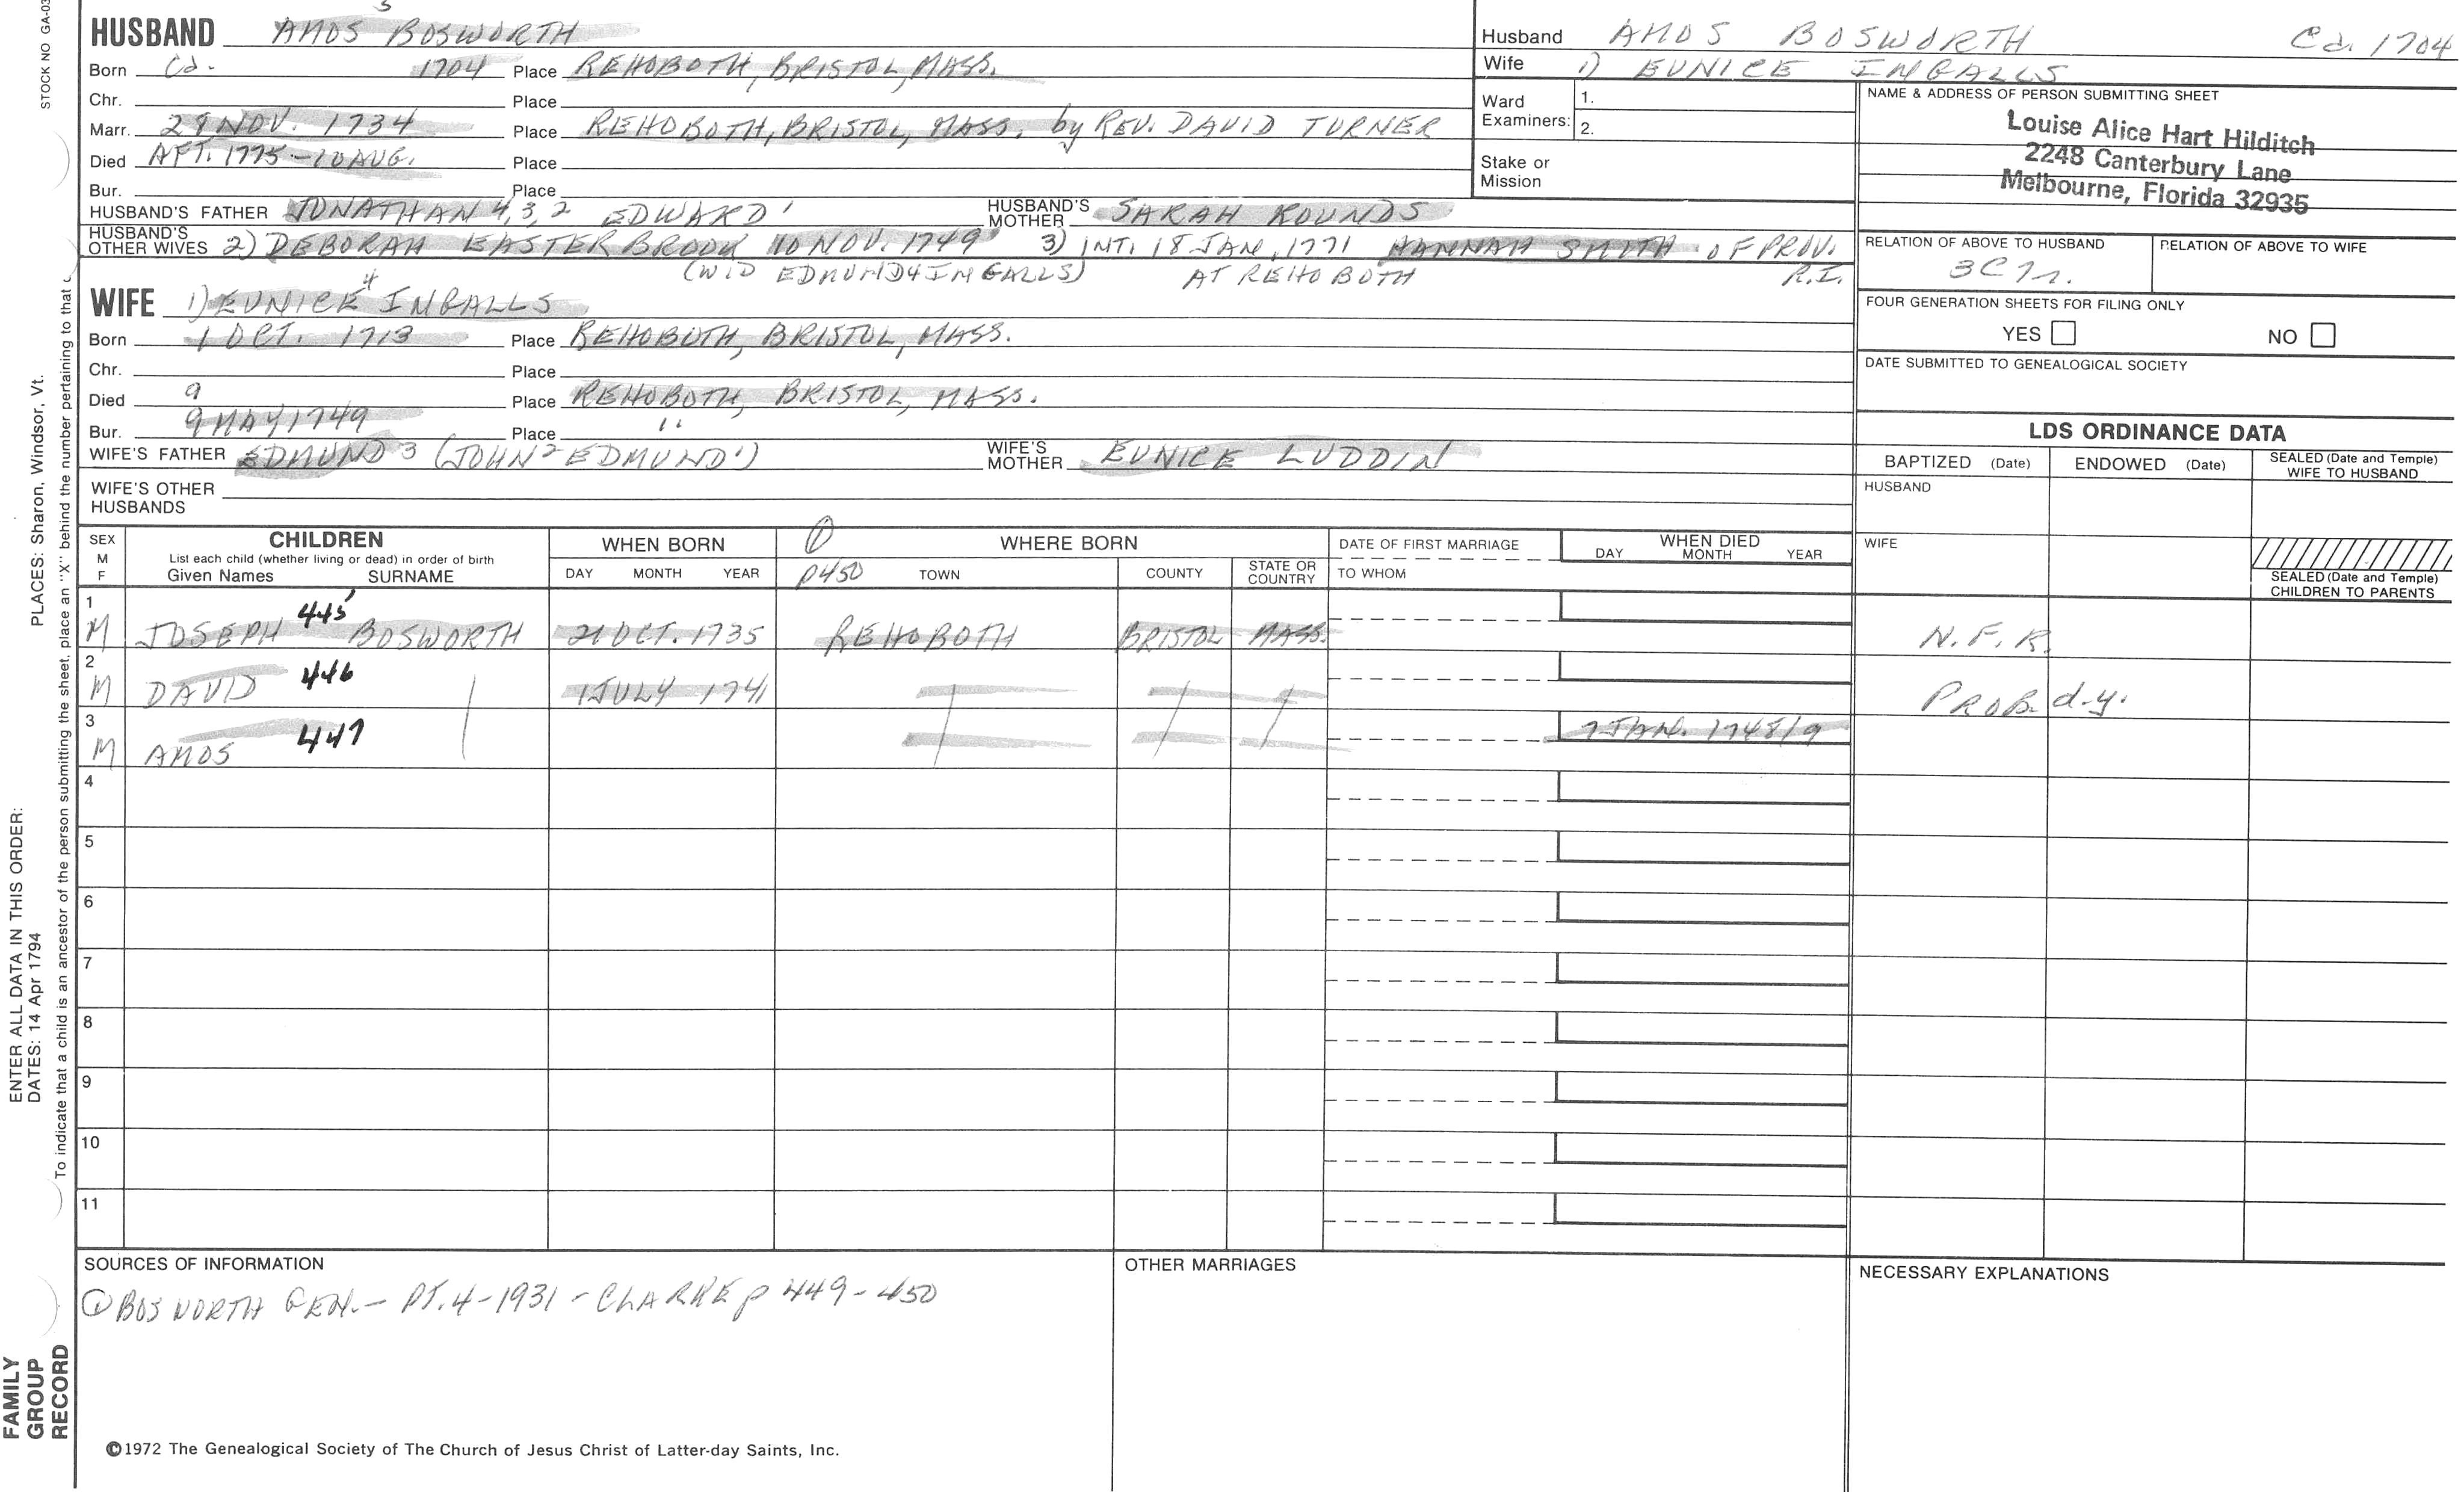 STOCK NO GA-03
HUSBAND AMOS 5 BOSWORTH
Born Ca. 1704 Place REHOBOTH, BRISTOL, MASS.
Chr. Place
Marr. 29 NOV. 1734 Place REHOBOTH, BRISTOL, MASS. by REV. DAVID TURNER
Died AFT. 1775-10 AUG. Place
Bur. Place
HUSBAND'S FATHER JONATHAN 4,3,2 EDWARD 1 HUSBAND'S MOTHER SARAH ROUNDS
HUSBAND'S OTHER WIVES 2) DEBORAH EASTERBROOK 10 NOV. 1749 3) INT. 18 JAN, 1771 HANNAH SMITH OF PROV.
(WID EDMUND 4 INGALLS) AT REHOBOTH R.I.
WIFE 1) EUNICE 4 INGALLS
Born 1 OCT. 1713 Place REHOBOTH, BRISTOL, MASS.
Chr. Place
Died 9 Place REHOBOTH, BRISTOL, MASS.
9 MAY 1749
Bur. Place "
WIFE'S FATHER EDMUND 3 (JOHN 2 EDMUND 1) WIFE'S MOTHER EUNICE LUDDIN
WIFE'S OTHER HUSBANDS
Husband AMOS BOSWORTH Ca. 1704
Wife 1) EUNICE INGALLS
Ward Examiners: 1.
2.
Stake or Mission
NAME & ADDRESS OF PERSON SUBMITTING SHEET
Louise Alice Hart Hilditch
2248 Canterbury Lane
Melbourne, Florida 32935
RELATION OF ABOVE TO HUSBAND RELATION OF ABOVE TO WIFE
3C7r.
FOUR GENERATION SHEETS FOR FILING ONLY
YES NO
DATE SUBMITTED TO GENEALOGICAL SOCIETY
LDS ORDINANCE DATA
BAPTIZED (Date) ENDOWED (Date) SEALED (Date and Temple) WIFE TO HUSBAND
HUSBAND
WIFE
SEALED (Date and Temple) CHILDREN TO PARENTS
SEX M F
CHILDREN
List each child (whether living or dead) in order of birth
Given Names SURNAME
WHEN BORN
DAY MONTH YEAR
① p450
WHERE BORN
TOWN COUNTY STATE OR COUNTRY
DATE OF FIRST MARRIAGE
TO WHOM
WHEN DIED
DAY MONTH YEAR
1 M JOSEPH 445 BOSWORTH 21 OCT. 1735 REHOBOTH BRISTOL MASS. N.F.R.
2 M DAVID 446 1 JULY 1741 PROB. d.y.
3 M AMOS 447 7 JAN. 1748/9
4
5
6
7
8
9
10
11
SOURCES OF INFORMATION
① BOSWORTH GEN.- PT.4-1931-CLARKE p 449-450
OTHER MARRIAGES
NECESSARY EXPLANATIONS
©1972 The Genealogical Society of The Church of Jesus Christ of Latter-day Saints, Inc.
PLACES: Sharon, Windsor, Vt.
To indicate that a child is an ancestor of the person submitting the sheet, place an "X" behind the number pertaining to that c
ENTER ALL DATA IN THIS ORDER:
DATES: 14 Apr 1794
FAMILY
GROUP
RECORD